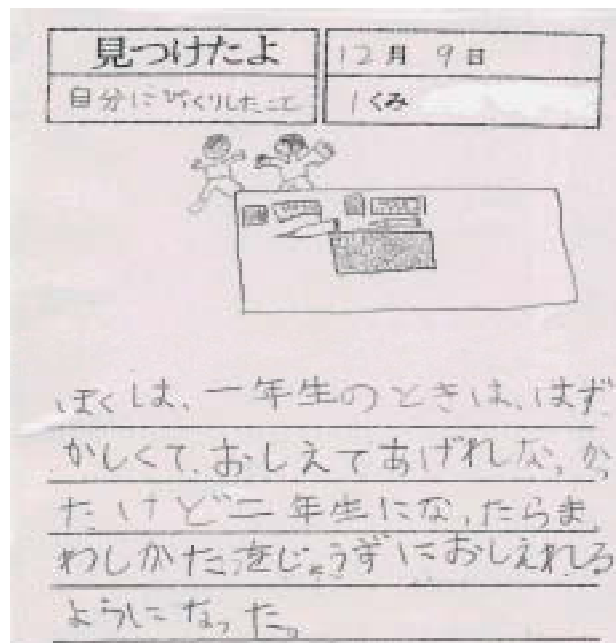 見つけたよ
12月 9日
自分にびっくりしたこと
1くみ
ぼくは、一年生のときは、はず
かしくて、おしえてあげれなかっ
たけど二年生になったらま
わしかたをじょうずにおしえれる
ようになった。